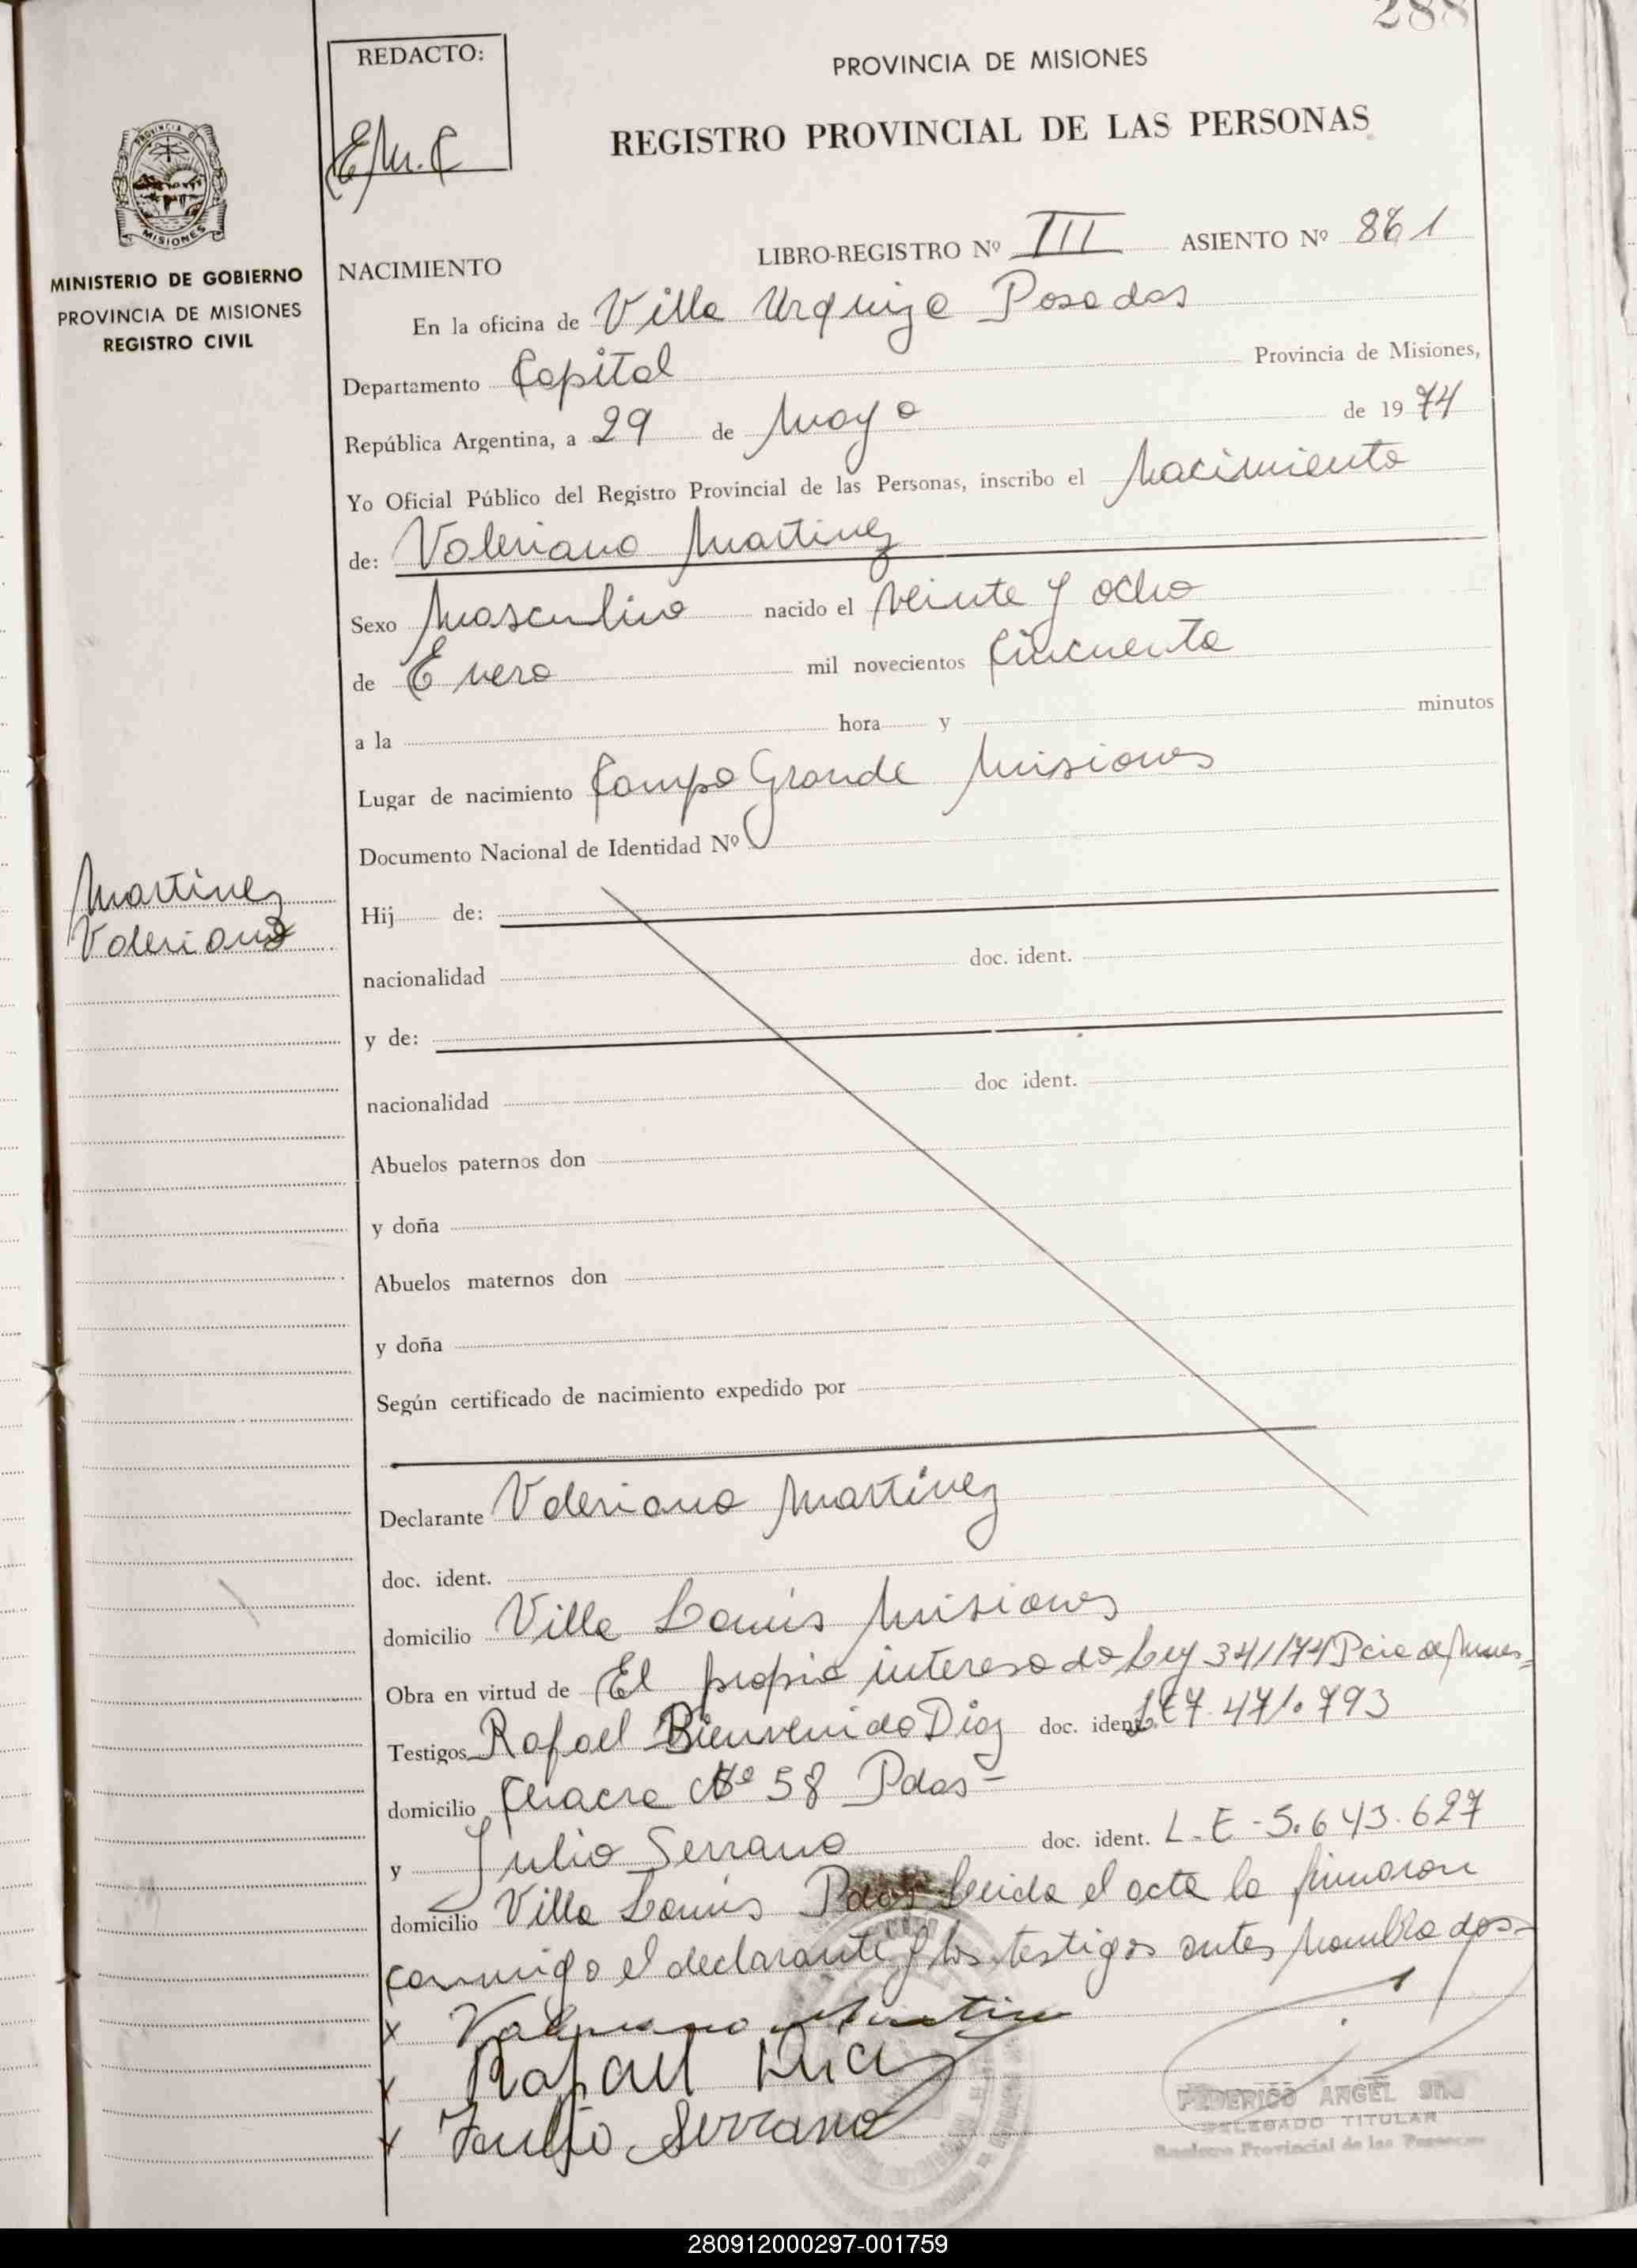 288
REDACTO:
PROVINCIA DE MISIONES
REGISTRO PROVINCIAL DE LAS PERSONAS
PROVINCIA DE
MISIONES
MINISTERIO DE GOBIERNO
PROVINCIA DE MISIONES
REGISTRO CIVIL
NACIMIENTO LIBRO-REGISTRO Nº III ASIENTO Nº 861
En la oficina de Villa Urquiza Posadas
Departamento Capital Provincia de Misiones,
República Argentina, a 29 de Mayo de 1974
Yo Oficial Público del Registro Provincial de las Personas, inscribo el Nacimiento
de: Valeriano Martinez
Sexo Masculino nacido el Veinte y ocho
de Enero mil novecientos Cincuenta
a la hora y minutos
Lugar de nacimiento Campo Grande Misiones
Documento Nacional de Identidad Nº
Martinez
Valeriano
Hij de:
nacionalidad doc. ident.
y de:
nacionalidad doc ident.
Abuelos paternos don
y doña
Abuelos maternos don
y doña
Según certificado de nacimiento expedido por
Declarante Valeriano Martinez
doc. ident.
domicilio Villa Lanús Misiones
Obra en virtud de El propio interesado Ley 341/74 Pcia de Mnes=
Testigos Rafael Bienvenido Diaz doc. ident. LE 7.471.793
domicilio Chacra Nº 58 Pdas-
y Julio Serrano doc. ident. L.E-5.643.627
domicilio Villa Lanús Pdas Leida el acta la firmaron
conmigo el declarante y los testigos antes nombrados-
x Valeriano Martinez
x Rafael Diaz
x Julio Serrano
FEDERICO ANGEL
DELEGADO TITULAR
Registro Provincial de las Personas
280912000297-001759